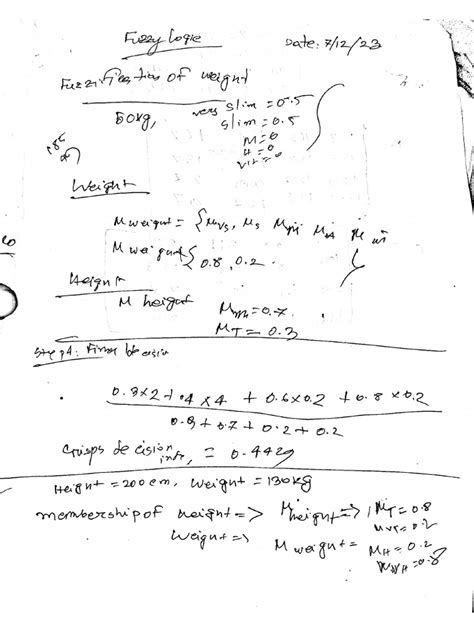 Fuzzy Logic
Date: 7/12/23
Fuzzification of weight
50kg, very slim = 0.5
slim = 0.5
M = 0
H = 0
VH = 0
Weight
M weight = {Mvs, Ms
M weight { 0.8, 0.2
Height
M height Mm = 0.7
MT = 0.3
Step 4: Final Decision
0.8×2 + .4×4 + 0.6×0.2 + 0.8×0.2
+ 0.7 + 0.2 + 0.2
crisps decision = 0.4429
Height = 200cm, Weight = 130kg
membership of height => M height => MT = 0.8
MVT = 0.2
Weight => M weight = MH = 0.2
MVH = 0.8